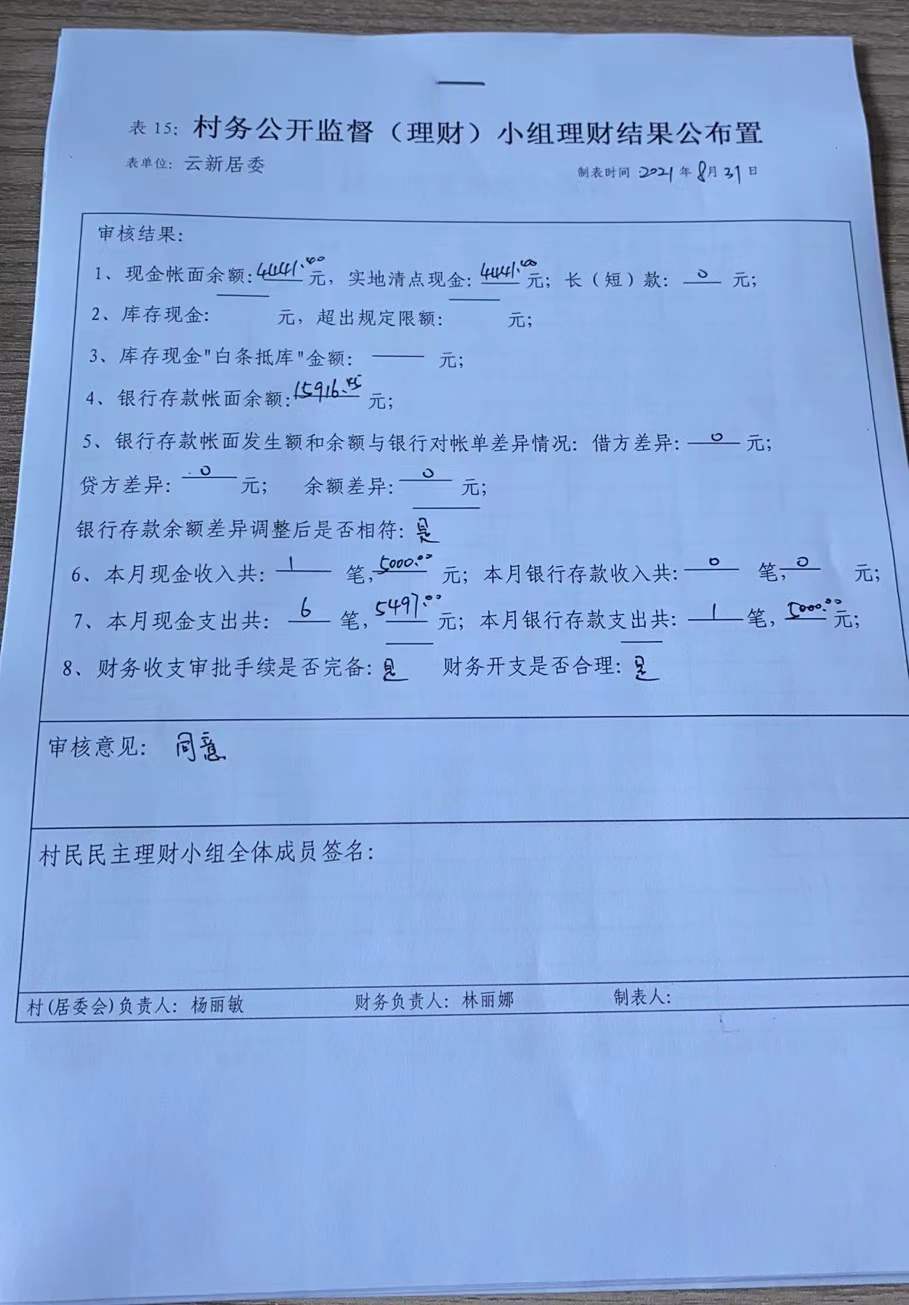 表 15: 村务公开监督（理财）小组理财结果公布置
表单位: 云新居委 制表时间 2021 年 8 月 31 日
审核结果:
1、现金帐面余额: 4441.40 元, 实地清点现金: 4441.40 元; 长（短）款: 0 元;
2、库存现金: 元, 超出规定限额: 元;
3、库存现金"白条抵库"金额: —— 元;
4、银行存款帐面余额: 15916.45 元;
5、银行存款帐面发生额和余额与银行对帐单差异情况: 借方差异: 0 元;
贷方差异: 0 元; 余额差异: 0 元;
银行存款余额差异调整后是否相符: 是
6、本月现金收入共: 1 笔, 5000.00 元; 本月银行存款收入共: 0 笔, 0 元;
7、本月现金支出共: 6 笔, 5497.00 元; 本月银行存款支出共: 1 笔, 5000.00 元;
8、财务收支审批手续是否完备: 是 财务开支是否合理: 是
审核意见: 同意
村民民主理财小组全体成员签名:
村(居委会)负责人: 杨丽敏 财务负责人: 林丽娜 制表人: